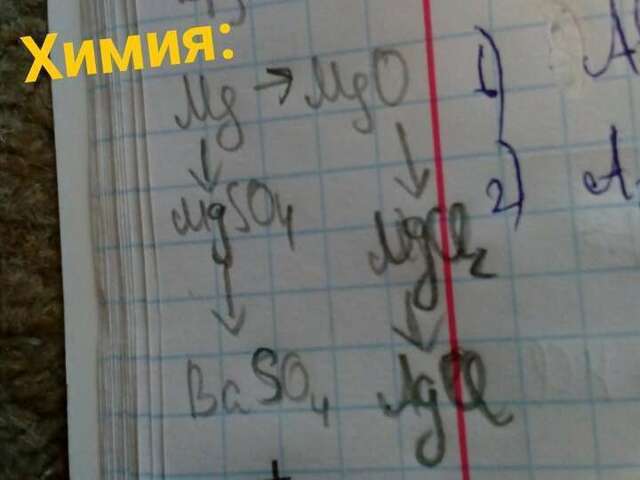 Химия:
Mg → MgO
↓ ↓
MgSO4 MgCl2
↓ ↓
BaSO4 AgCl
1) A
2) A